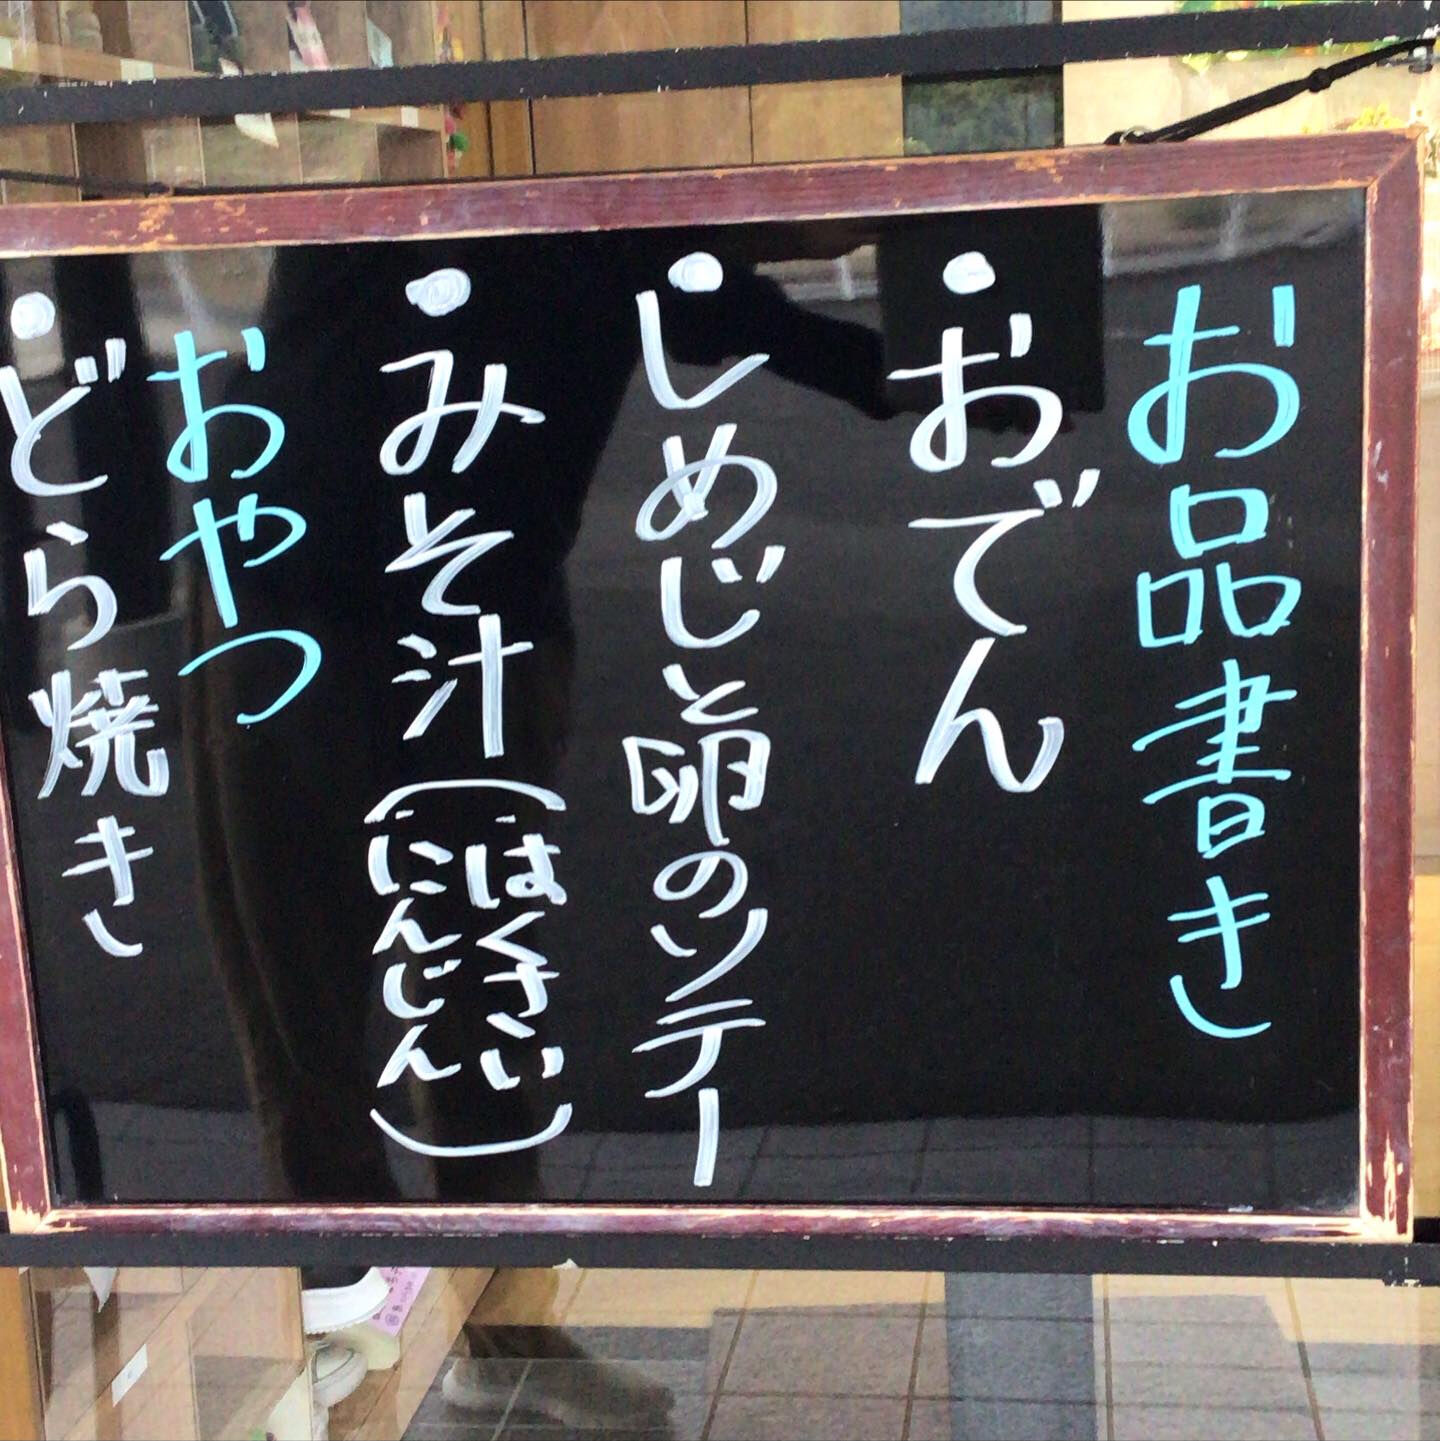 お品書き
・おでん
・しめじと卵のソテー
・みそ汁(はくさい
にんじん)
おやつ
・どら焼き